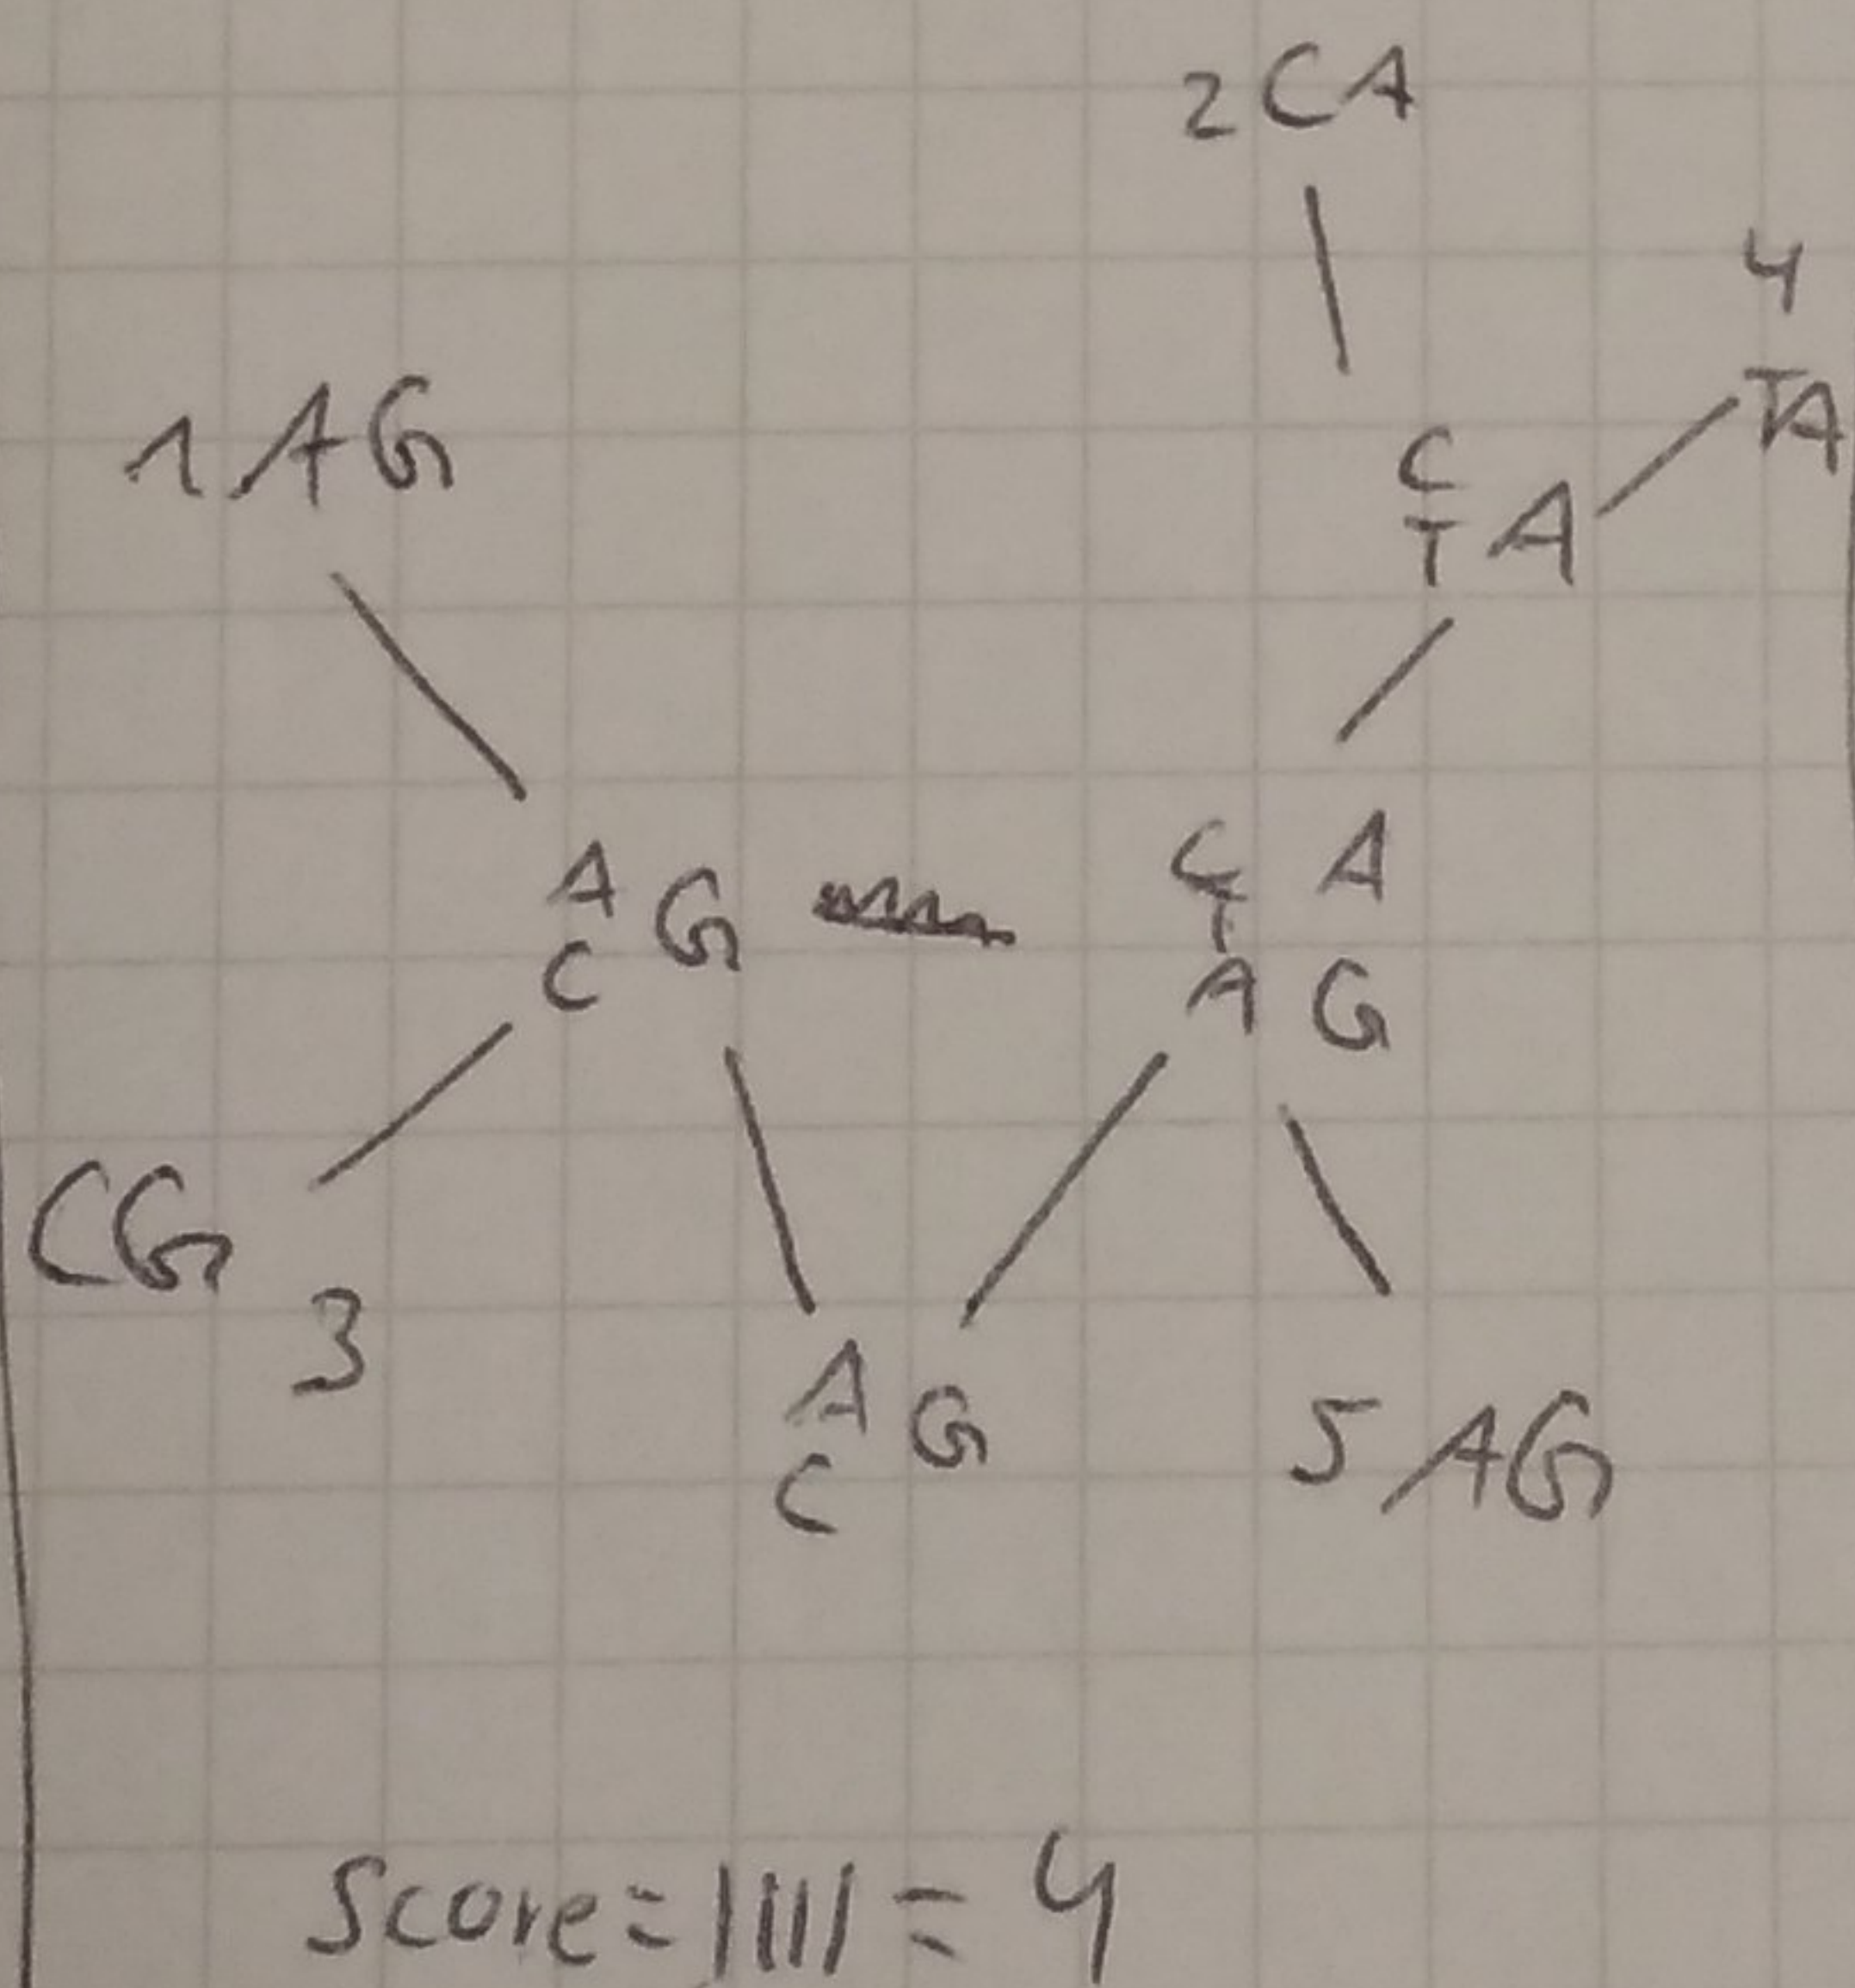 2 CA
4
TA
1 AG
C
T A
A
C G
C A
T
A G
CG
3
A
C G
5 AG
Score = |||| = 4